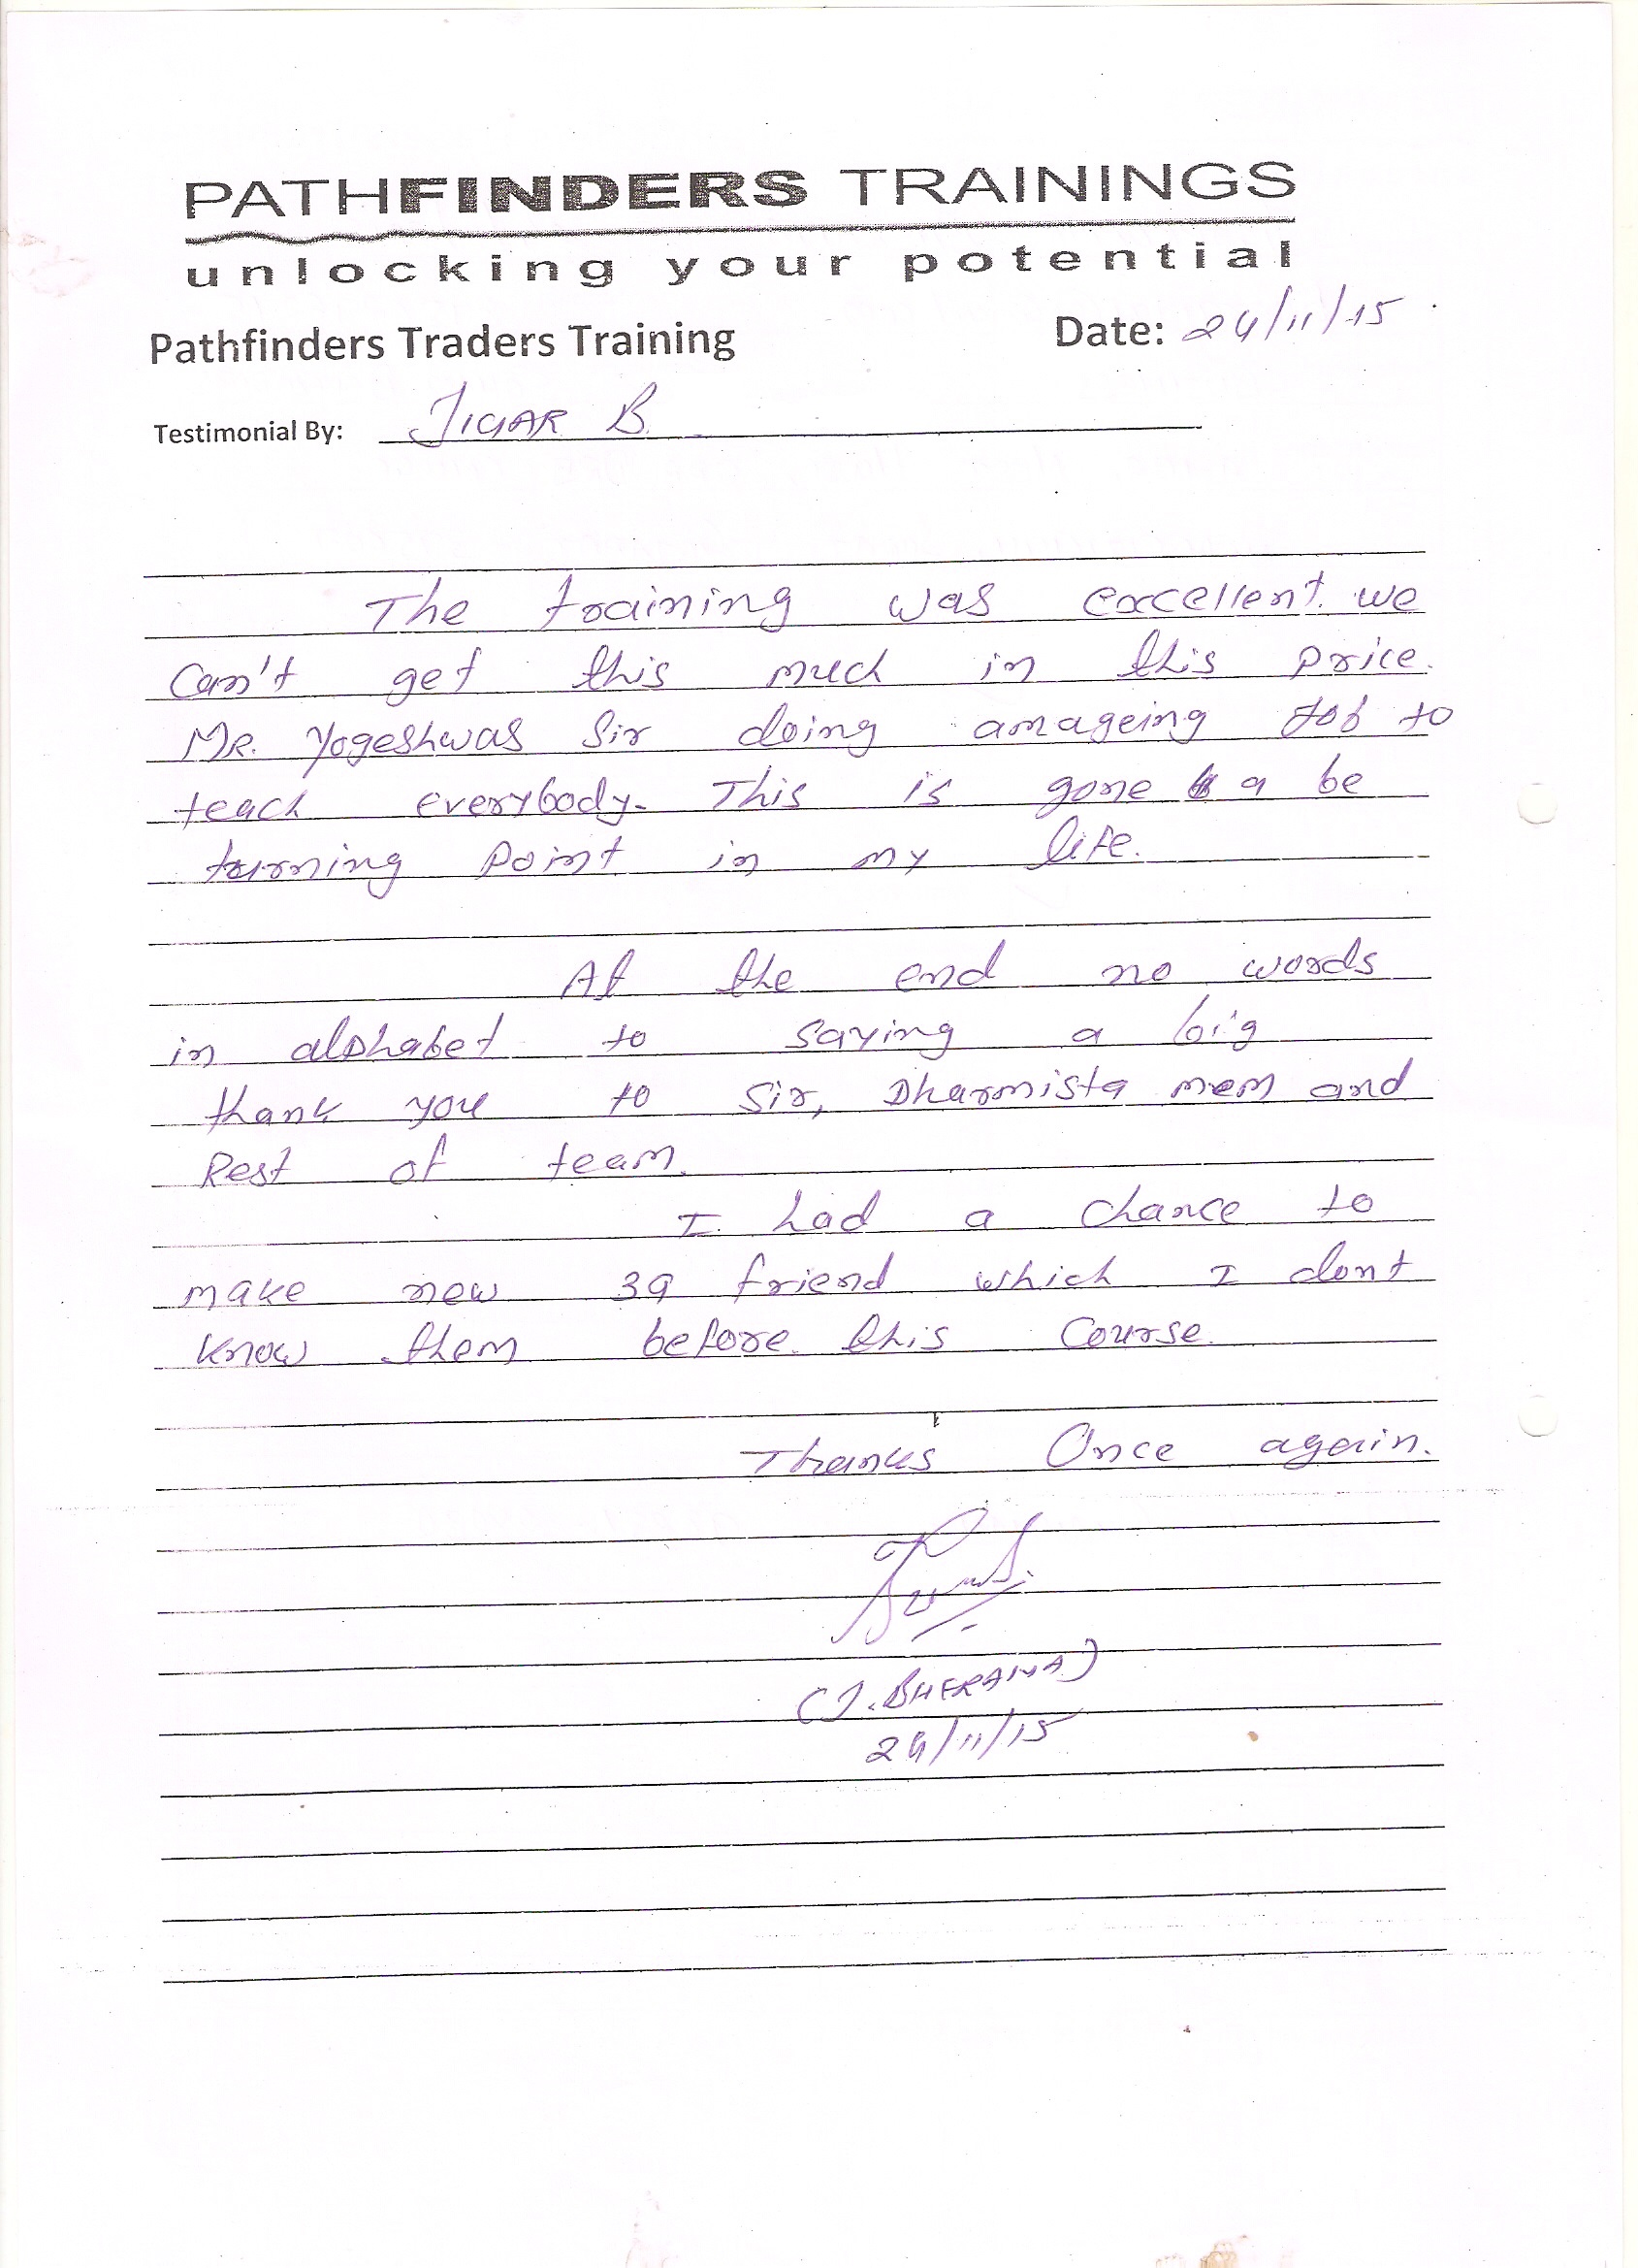 PATHFINDERS TRAININGS
unlocking your potential
Pathfinders Traders Training Date: 24/11/15
Testimonial By: JIGAR B.
The training was excellent. we
can't get this much in this price.
MR. Yogeshwar Sir doing amageing Job to
teach everybody. This is gone a be
turning point in my life.
At the end no words
in alphabet to saying a big
thank you to Sir, Dharmista mem and
Rest of team.
I had a chance to
make new 39 friend which I dont
know them before this course.
Thanks Once again.
(J. BHERANA)
24/11/15